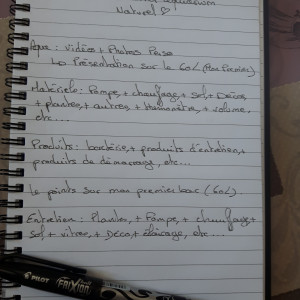 Aquarium
Naturel ♡
Aqua : Vidéos + Photos Perso
↳ Présentation sur le 60L (Mon Premier)
Matériels : Pompe, + chauffage, + Sol, + Décos,
+ plantes, + autres, + thermomètre, + volume,
etc...
Produits : bactérie, + produits d'entretien, +
produits de démarrage, etc...
Le points sur mon premier bac (60L).
Entretien : Plantes, + Pompe, + chauffage, +
Sol, + vitres, + Déco, + éclairage, etc...
PILOT FRIXION